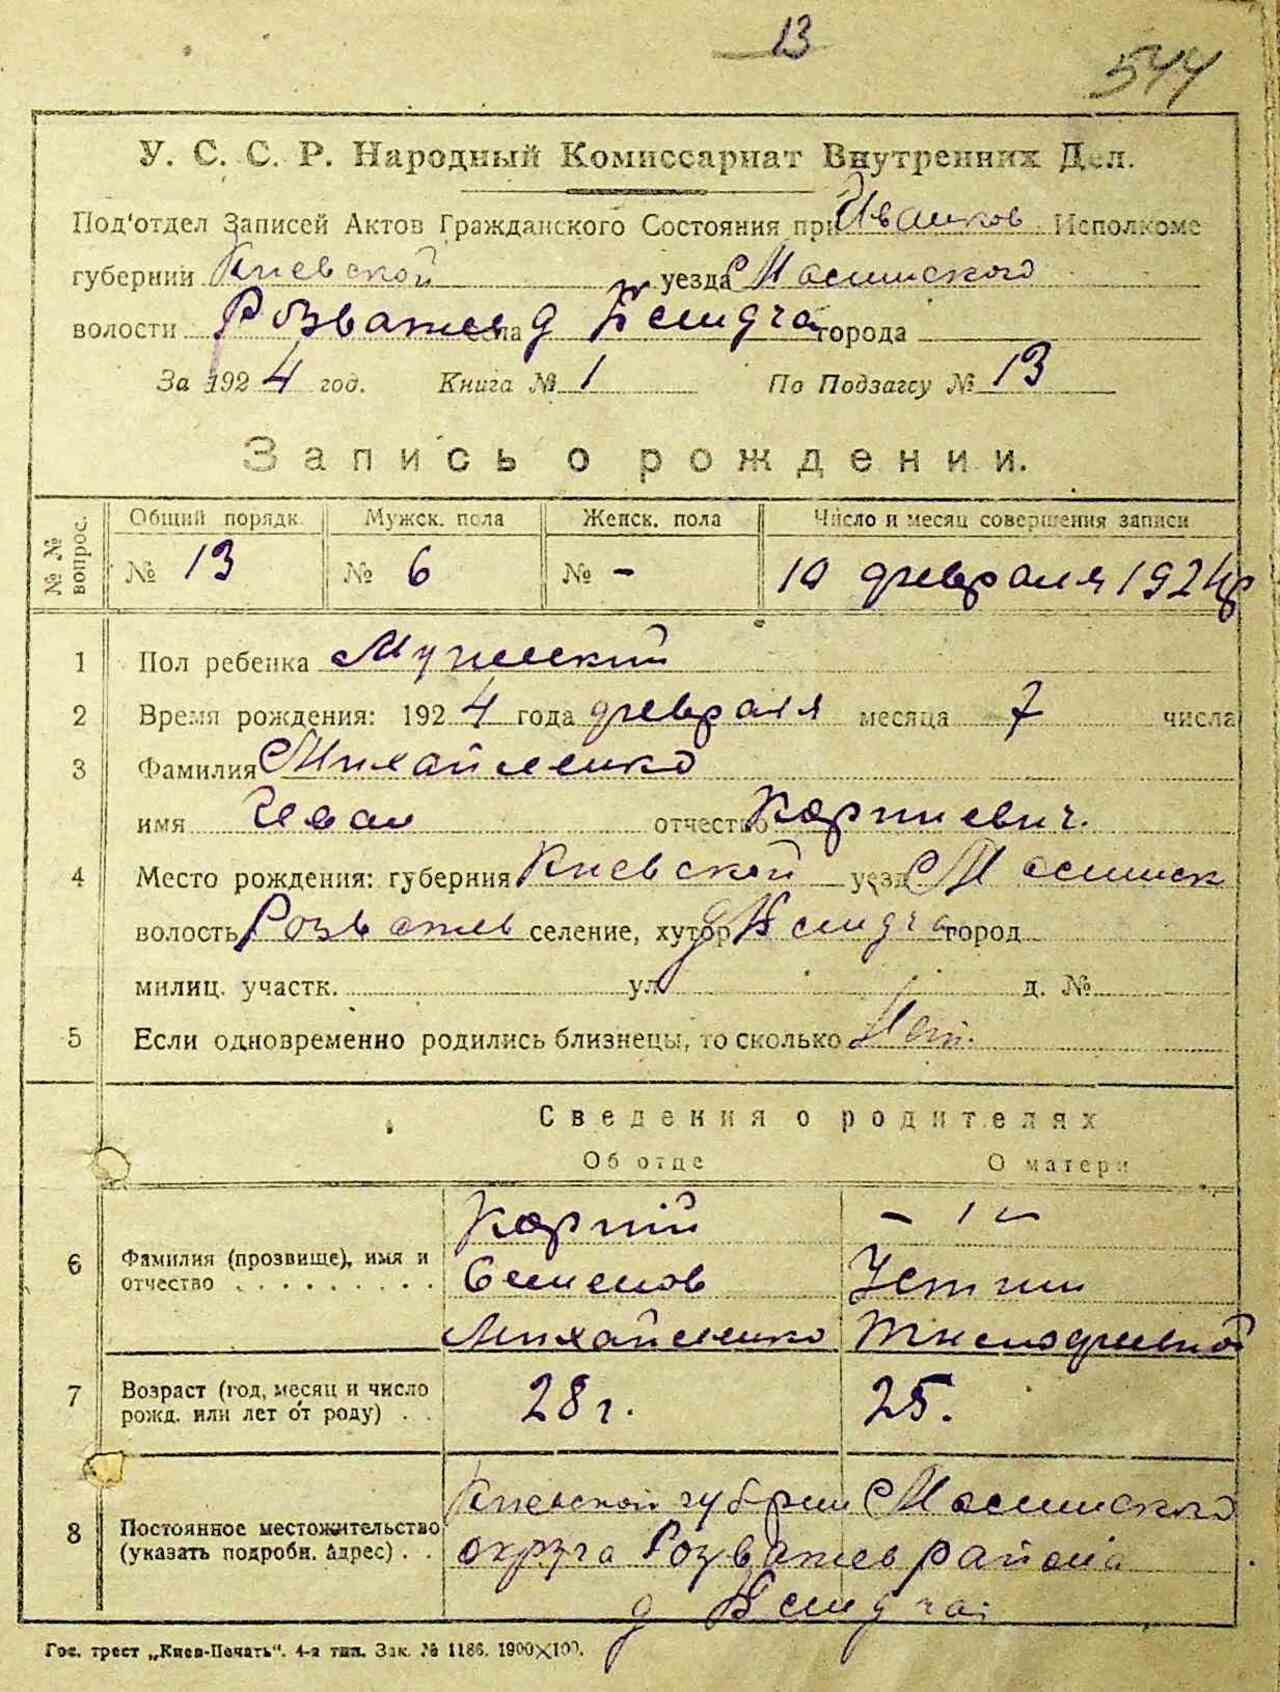 13
544
У. С. С. Р. Народный Комиссариат Внутренних Дел.
Под'отдел Записей Актов Гражданского Состояния при Иванков. Исполкоме
губернии Киевской уезда Малинского
волости Розважев села д города
За 1924 год. Книга № 1 По Подзагсу № 13
Запись о рождении.
№ № вопрос.
Общий порядк. Мужск. пола Женск. пола Число и месяц совершения записи
№ 13 № 6 № - 10 февраля 1924 г
1 Пол ребенка Мужеский
2 Время рождения: 1924 года февраля месяца 7 числа
3 Фамилия Михайленко
имя Иван отчество Корниевич.
4 Место рождения: губерния Киевской уезд Малинск
волость Розважев селение, хутор д город
милиц. участк. ул. д. №
5 Если одновременно родились близнецы, то сколько Нет.
Сведения о родителях
Об отце О матери
6 Фамилия (прозвище), имя и отчество
Корній
Семенов
Михайленко Тимофиевной
7 Возраст (год, месяц и число рожд. или лет от роду) . . 28 г. 25.
8 Постоянное местожительство (указать подробн. адрес) . .
Киевской губернии Малинского
округа Розважев района
д
Гос. трест „Киев-Печать". 4-я тип. Зак. № 1186. 1900×100.